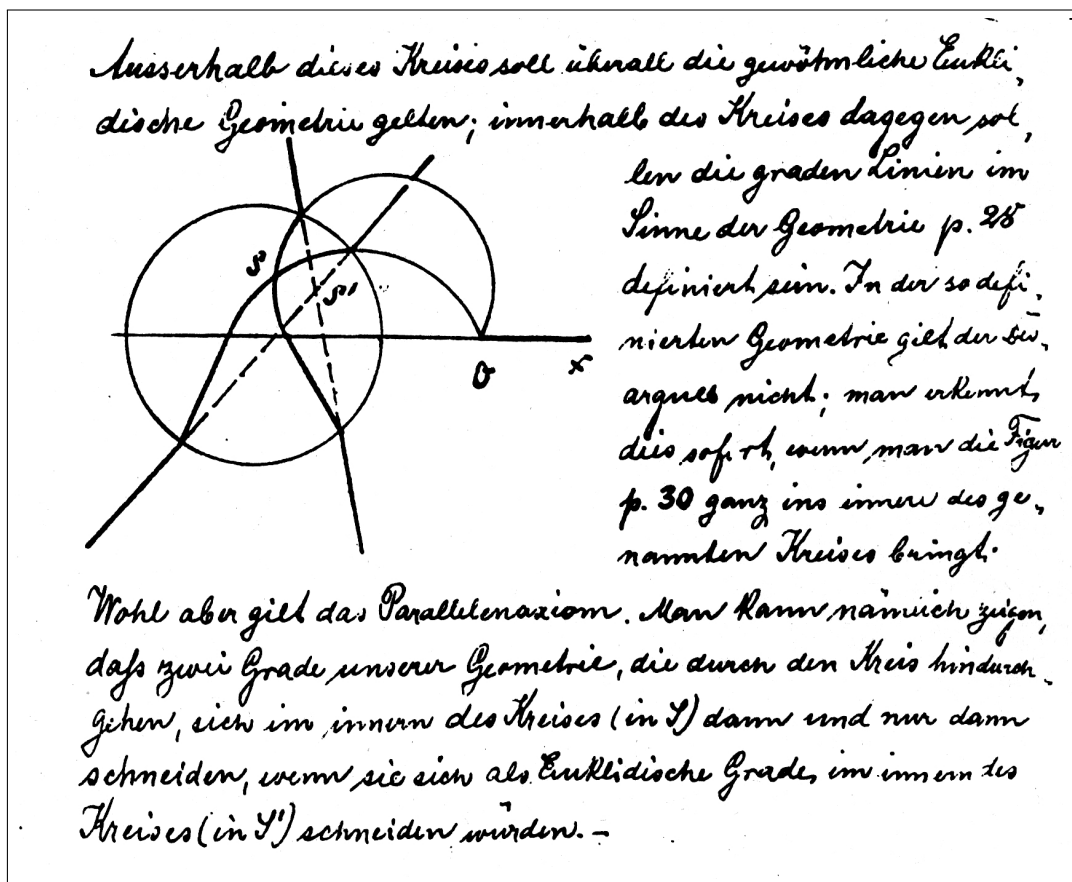 Ausserhalb dieses Kreises soll überall die gewöhnliche Eukli-
dische Geometrie gelten; innerhalb des Kreises dagegen sol-
len die graden Linien im
Sinne der Geometrie p. 28
definiert sein. In der so defi-
nierten Geometrie gilt der Des-
argues nicht; man erkennt
dies sofort, wenn man die Figur
p. 30 ganz ins innere des ge-
nannten Kreises bringt.
S
S'
O
x
Wohl aber gilt das Parallelenaxiom. Man kann nämlich zeigen,
daſs zwei Grade unserer Geometrie, die durch den Kreis hindurch-
gehen, sich im innern des Kreises (in S) dann und nur dann
schneiden, wenn sie sich als Euklidische Grade, im innern des
Kreises (in S') schneiden würden. –